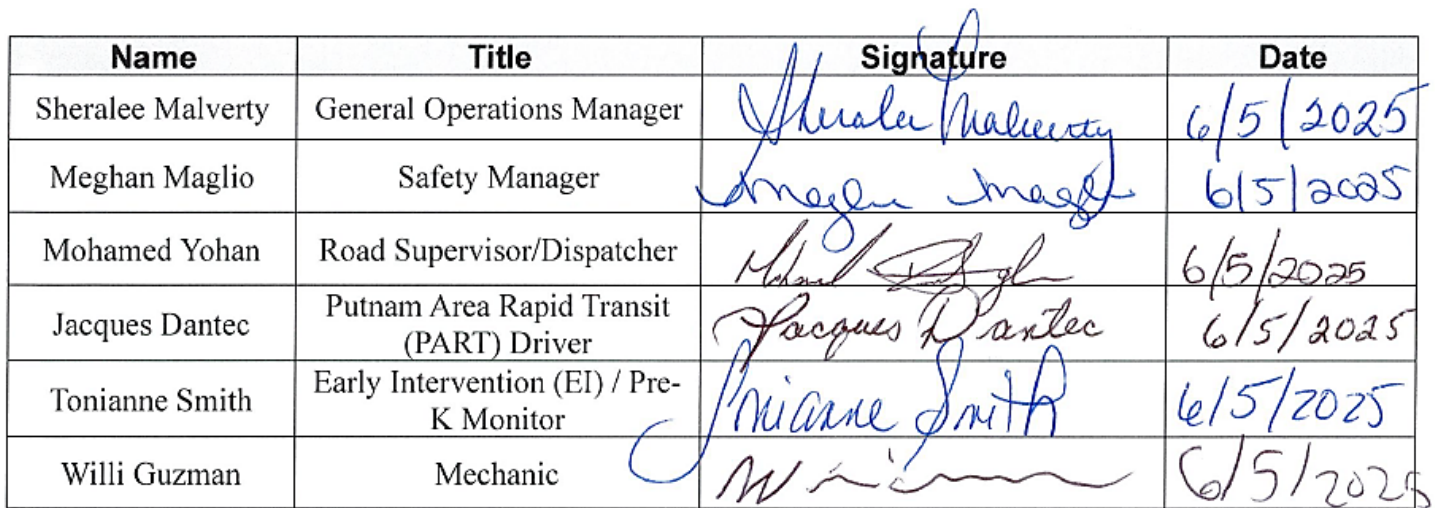 Name Title Signature Date
Sheralee Malverty General Operations Manager Sheralee Malverty 6/5/2025
Meghan Maglio Safety Manager Meghan Maglio 6/5/2025
Mohamed Yohan Road Supervisor/Dispatcher Mohamed 6/5/2025
Jacques Dantec Putnam Area Rapid Transit
(PART) Driver Jacques Dantec 6/5/2025
Tonianne Smith Early Intervention (EI) / Pre-
K Monitor Tonianne Smith 6/5/2025
Willi Guzman Mechanic 6/5/2025